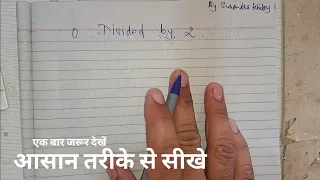 By Surendra
0 Divided by 2
एक बार जरूर देखें
आसान तरीके से सीखे